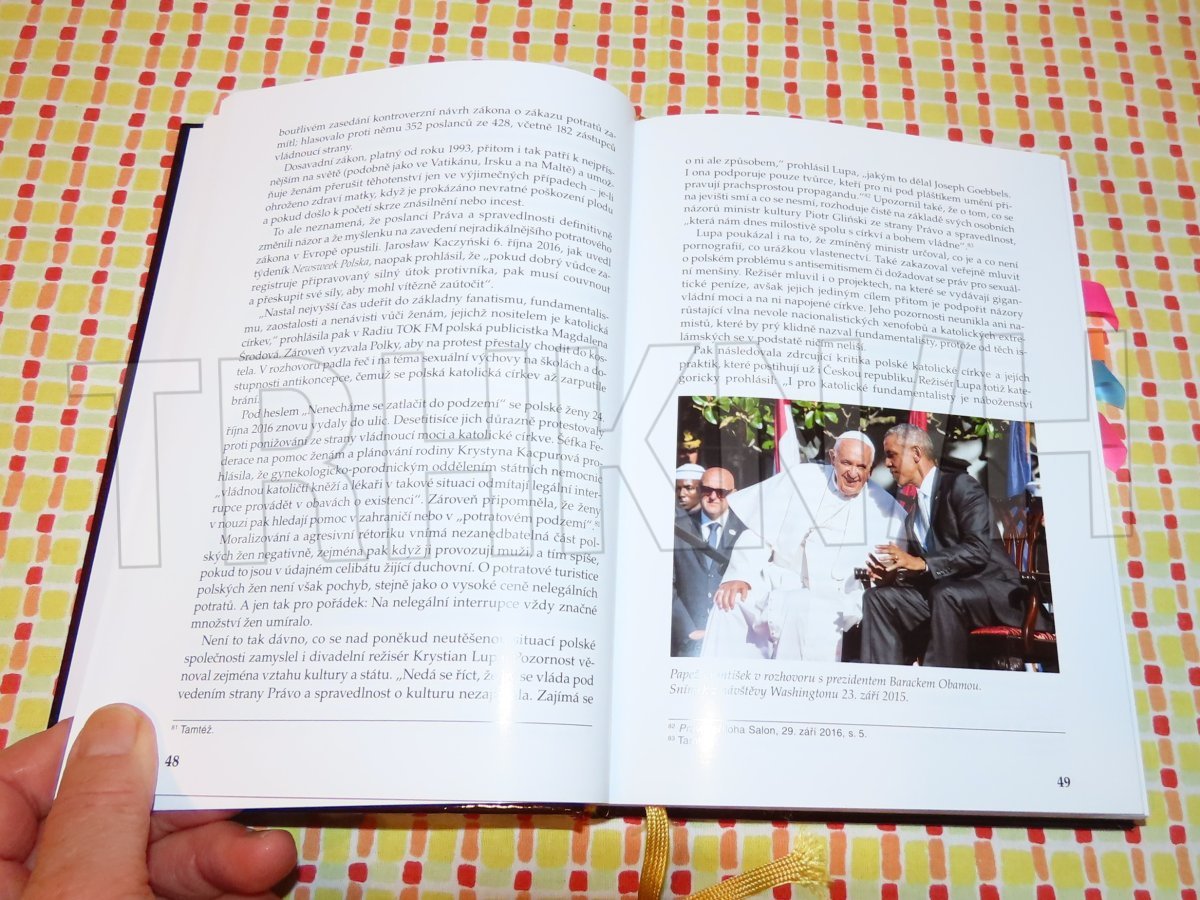 bouřlivém zasedání kontroverzní návrh zákona o zákazu potratů za-
mítl; hlasovalo proti němu 352 poslanců ze 428, včetně 182 zástupců
vládnoucí strany.
Dosavadní zákon, platný od roku 1993, přitom i tak patří k nejpřís-
nějším na světě (podobně jako ve Vatikánu, Irsku a na Maltě) a umož-
ňuje ženám přerušit těhotenství jen ve výjimečných případech – je-li
ohroženo zdraví matky, když je prokázáno nevratné poškození plodu
a pokud došlo k početí skrze znásilnění nebo incest.
To ale neznamená, že poslanci Práva a spravedlnosti definitivně
změnili názor a že myšlenku na zavedení nejradikálnějšího potratového
zákona v Evropě opustili. Jarosław Kaczyński 6. října 2016, jak uvedl
týdeník Newsweek Polska, naopak prohlásil, že „pokud dobrý vůdce za-
registruje připravovaný silný útok protivníka, pak musí couvnout
a přeskupit své síly, aby mohl vítězně zaútočit“.
„Nastal nejvyšší čas udeřit do základny fanatismu, fundamentalis-
mu, zaostalosti a nenávisti vůči ženám, jejichž nositelem je katolická
církev,“ prohlásila pak v Radiu TOK FM polská publicistka Magdalena
Środová. Zároveň vyzvala Polky, aby na protest přestaly chodit do kos-
tela. V rozhovoru padla řeč i na téma sexuální výchovy na školách a do-
stupnosti antikoncepce, čemuž se polská katolická církev až zarputile
brání.
Pod heslem „Nenecháme se zatlačit do podzemí“ se polské ženy 24.
října 2016 znovu vydaly do ulic. Desetitisíce jich důrazně protestovaly
proti ponižování ze strany vládnoucí moci a katolické církve. Šéfka Fe-
derace na pomoc ženám a plánování rodiny Krystyna Kacpurová pro-
hlásila, že gynekologicko-porodnickým oddělením státních nemocnic
„vládnou katoličtí kněží a lékaři v takové situaci odmítají legální inter-
rupce provádět v obavách o existenci“. Zároveň připomněla, že ženy
v nouzi pak hledají pomoc v zahraničí nebo v „potratovém podzemí“.
Moralizování a agresivní rétoriku vnímá nezanedbatelná část pol-
ských žen negativně, zejména pak když ji provozují muži, a tím spíše,
pokud to jsou v údajném celibátu žijící duchovní. O potratové turistice
polských žen není však pochyb, stejně jako o vysoké ceně nelegálních
potratů. A jen tak pro pořádek: Na nelegální interrupce vždy značné
množství žen umíralo.
Není to tak dávno, co se nad poněkud neutěšenou situací polské
společnosti zamyslel i divadelní režisér Krystian Lupa. Pozornost vě-
noval zejména vztahu kultury a státu. „Nedá se říct, že by se vláda pod
vedením strany Právo a spravedlnost o kulturu nezajímala. Zajímá se
81 Tamtéž.
48
o ni ale způsobem,“ prohlásil Lupa, „jakým to dělal Joseph Goebbels.
I ona podporuje pouze tvůrce, kteří pro ni pod pláštíkem umění při-
pravují prachsprostou propagandu.“82 Upozornil také, že o tom, co se
na jevišti smí a co se nesmí, rozhoduje čistě na základě svých osobních
názorů ministr kultury Piotr Gliński ze strany Právo a spravedlnost,
„která nám dnes milostivě spolu s církví a bohem vládne“.83
Lupa poukázal i na to, že zmíněný ministr určoval, co je a co není
pornografií, co urážkou vlastenectví. Také zakazoval veřejně mluvit
o polském problému s antisemitismem či dožadovat se práv pro sexuál-
ní menšiny. Režisér mluvil i o projektech, na které se vydávají gigan-
tické peníze, avšak jejich jediným cílem přitom je podpořit názory
vládní moci a na ni napojené církve. Jeho pozornosti neunikla ani na-
růstající vlna nevole nacionalistických xenofobů a katolických extré-
mistů, které by prý klidně nazval fundamentalisty, protože od těch is-
lámských se v podstatě ničím neliší.
Pak následovala zdrcující kritika polské katolické církve a jejích
praktik, které postihují už i Českou republiku. Režisér Lupa totiž kate-
goricky prohlásil: „I pro katolické fundamentalisty je náboženství
Papež František v rozhovoru s prezidentem Barackem Obamou.
Snímek z návštěvy Washingtonu 23. září 2015.
82 Salon, 29. září 2016, s. 5.
83
49
TRHKNIH